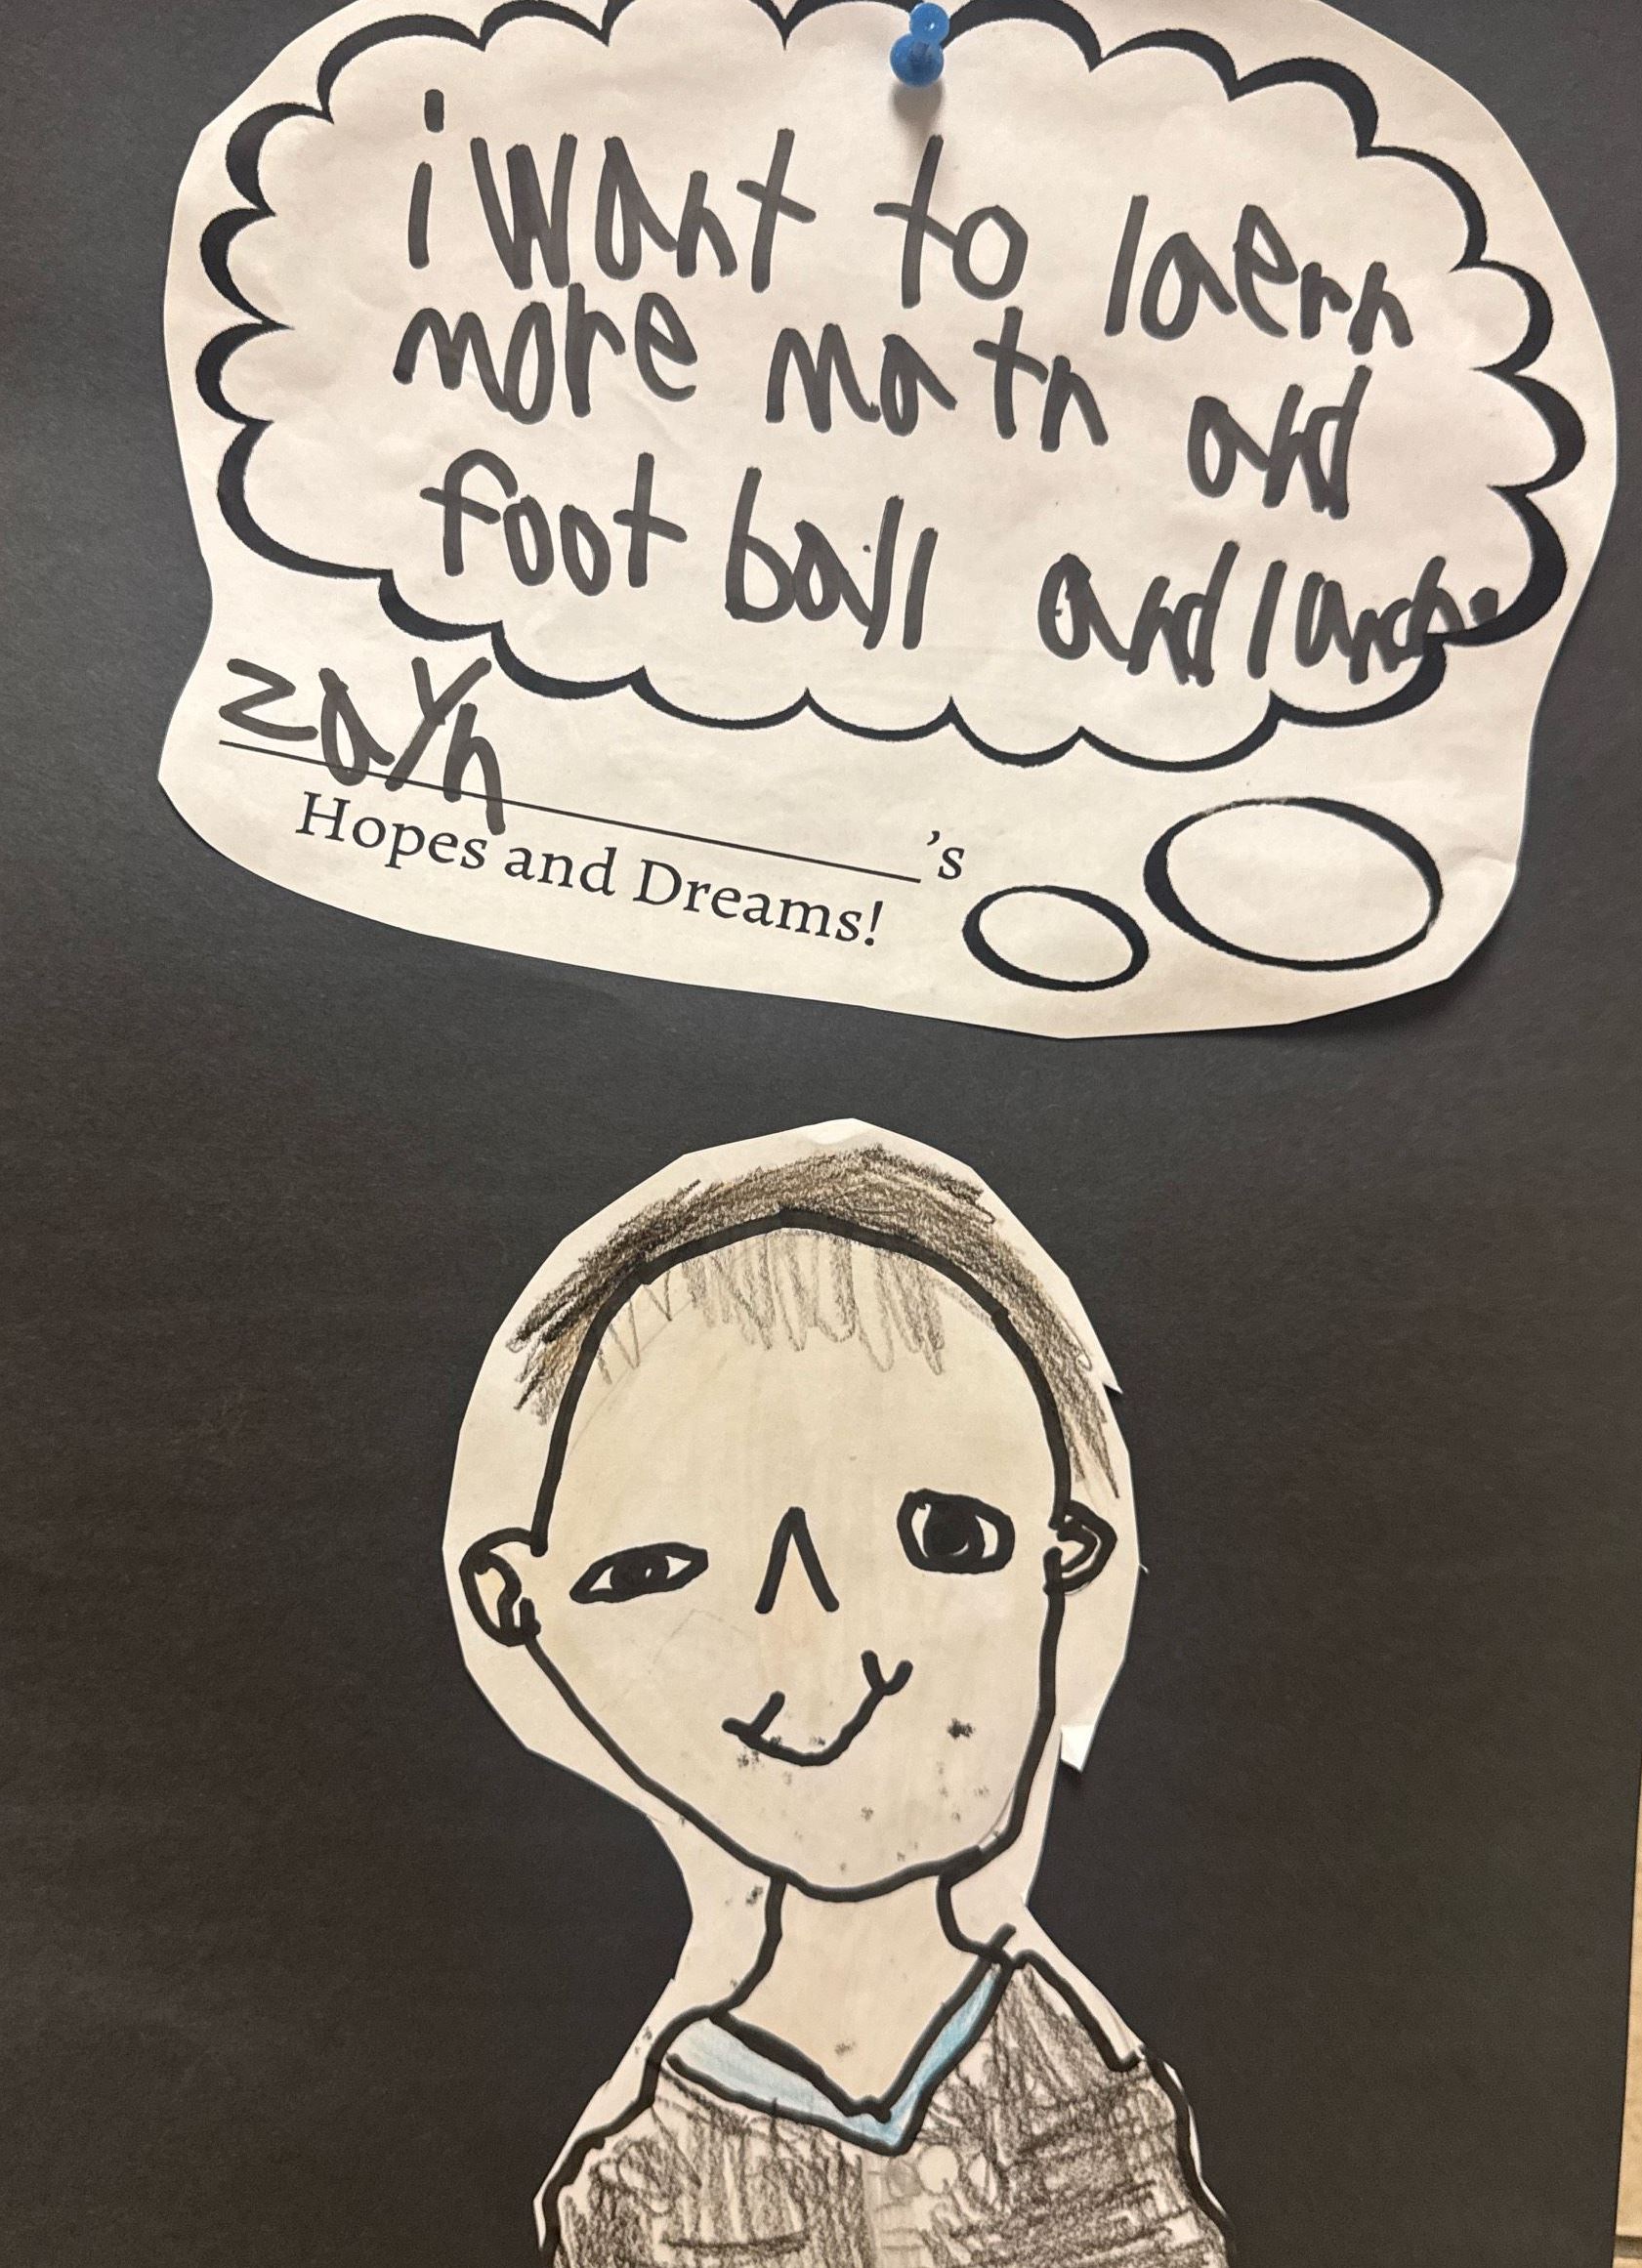 i want to laern
more math and
foot ball and lanch.
zayn
's
Hopes and Dreams!